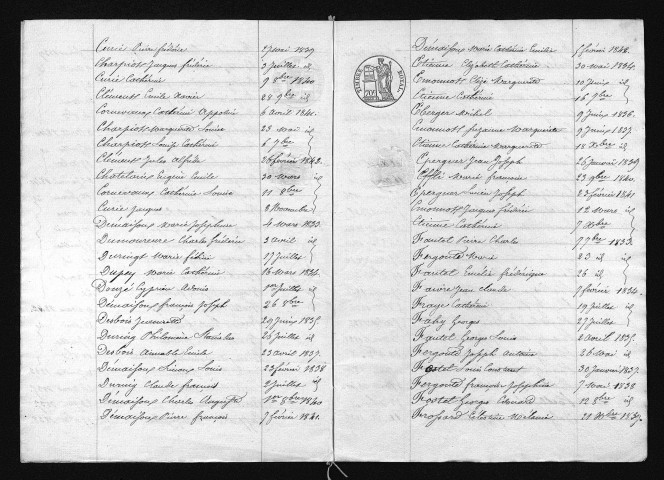 Curié Pierre frédéric 27 mai 1839
Charpiot Jacques frédéric 3 juillet id
Curié Catherine 9 8bre 1840
Clément Emile Xavier 28 9bre id
Cornevaux Catherine Appoline 6 avril 1841
Charpiot Marguerite Louise 23 mai id
Charpiot Louise Catherine 6 7bre
Clément Jules Alfred 26 février 1843
Chatelain Eugène Emile 30 mars id
Cornevaux Catherine Louise 11 8bre
Curie Jacques 8 Novembre
Démaison Marie Joséphine 4 mars 1833
Dumoureux Charles frédéric 3 avril id
Marie 17 juillet
Dupey Marie Catherine 16 mars 1834
Donzé Cyprien Adonis 1er juillet id
Démaison françois Joseph 26 9bre
Desbois 29 juin 1835
Philomène 26 juillet id
Desbois Aimable Emile 23 avril 1837
Démaison Louis 23 février 1838
Claude françois 2 juillet id
Démaison Charles Auguste 1er 8bre 1840
Démaison Pierre françois 7 février 1841
TIMBRE ROYAL
Démaison Marie Catherine Emilie février 1842
Etienne Elizabeth Catherine 30 mai 1834
Emonnot Elise Marguerite 10 juin id
Etienne Catherine 16 9bre
Eberger Michel 9 juin 1836
Emonnot Suzanne Marguerite 9 juin 1837
Etienne Catherine Marguerite 18 Xbre id
Epenguer Jean Joseph 26 janvier 1839
Marie françoise 23 9bre 1840
Joseph 23 février 1841
Emonnot Jacques frédéric 12 mars id
Etienne Catherine 7 Xbre
Fautet Pierre Charles 7 7bre 1833
Fergonte 23 id
Fautet Emilie frédérique 26 id
Faivre Jean Claude 7 février 1834
Fraye Catherine 19 juillet id
Fahy Georges 27 juillet
Fautet Georges Louis 2 avril 1835
Fergonte Joseph Antoine 26 mai id
Louis Constant 30 janvier 1837
Fergonte françois Joseph 7 mai 1838
Georges Edouard 12 8bre id
Frossard Mélanie 21 Xbre 1839